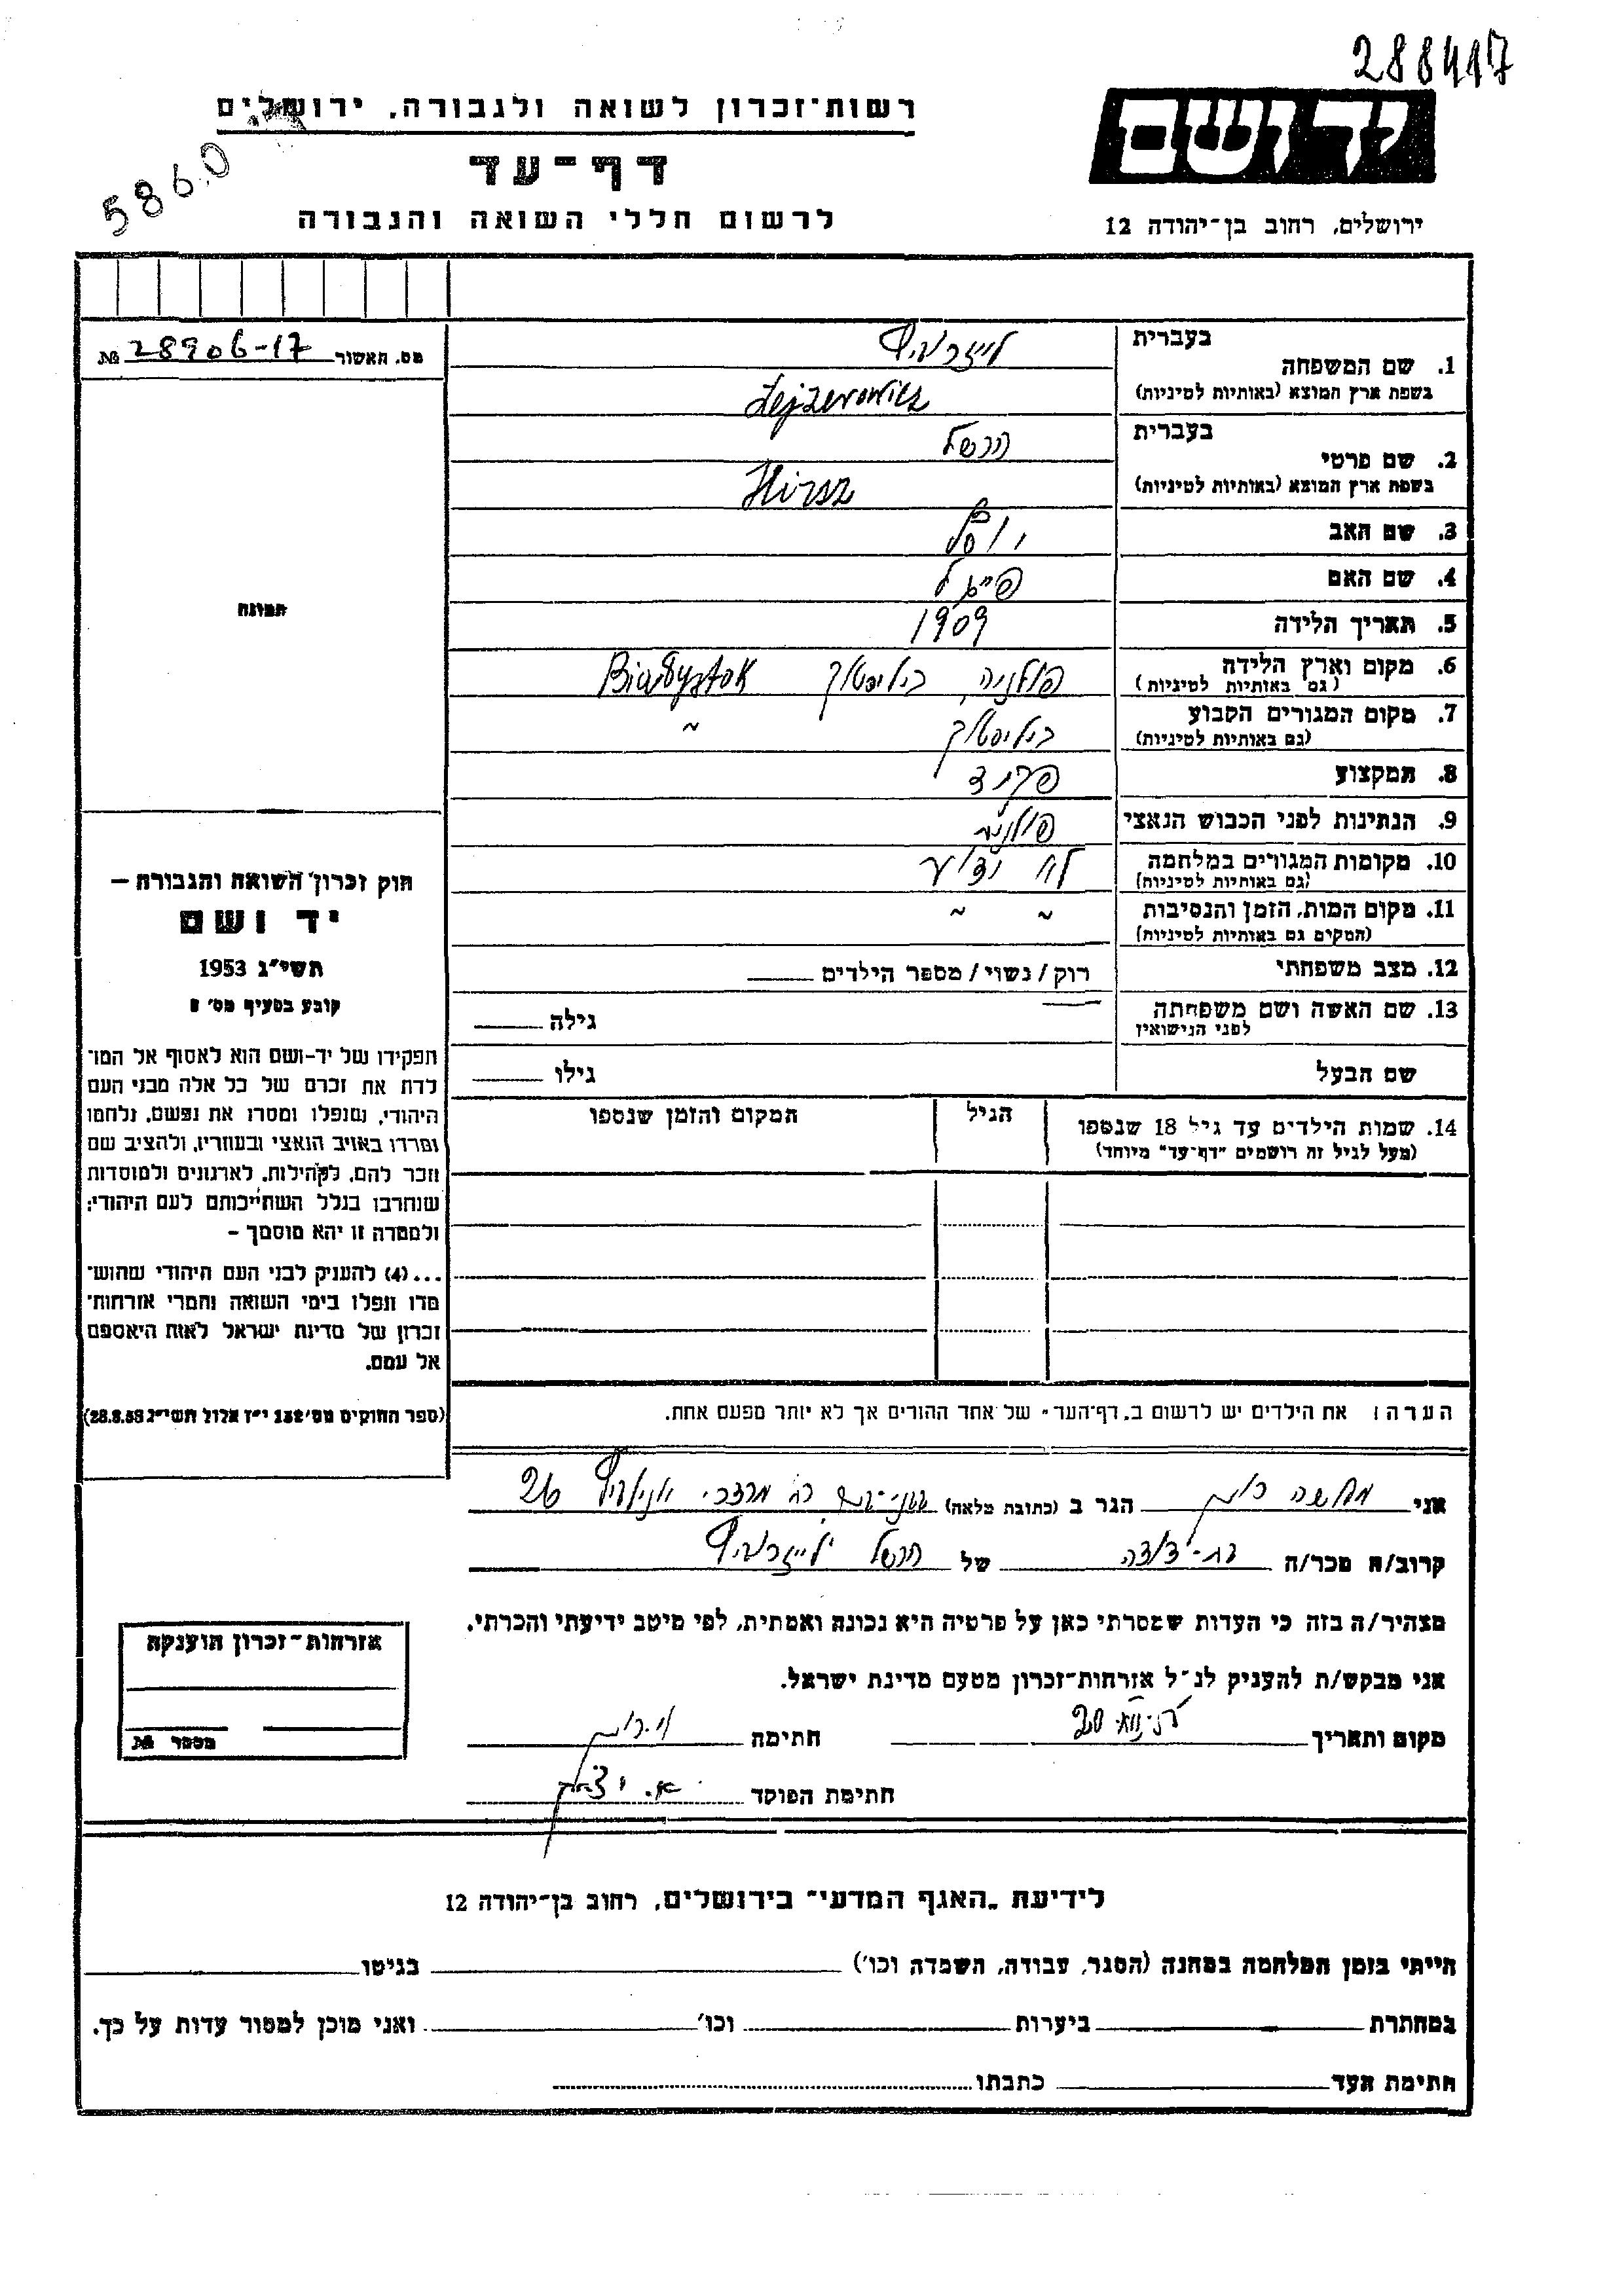 288417
רשות־זכרון לשואה ולגבורה, ירושלים
יד ושם
5860
דף־עד
לרשום חללי השואה והגבורה
ירושלים, רחוב בן־יהודה 12
מס. תאשור 28906-17 №
בעברית
1. שם המשפחה
לייזרוביץ
בשפת ארץ המוצא (באותיות לטיניות)
Lejzerowicz
בעברית
2. שם פרטי
הרשל
בשפת ארץ המוצא (באותיות לטיניות)
Hirsz
3. שם האב
יוסף
4. שם האם
פייגל
5. תאריך הלידה 1909
6. מקום וארץ הלידה פולניה, ביליסטוק Białystok
(גם באותיות לטיניות)
7. מקום המגורים הקבוע ביליסטוק ״
(גם באותיות לטיניות)
8. המקצוע פקיד
9. הנתינות לפני הכבוש הנאצי פולנית
10. מקומות המגורים במלחמה לא ידוע
(גם באותיות לטיניות)
11. מקום המות, הזמן והנסיבות ״ ״
(המקום גם באותיות לטיניות)
12. מצב משפחתי רוק/נשוי/מספר הילדים
13. שם האשה ושם משפחתה
לפני הנישואין
גילה
שם הבעל גילו
14. שמות הילדים עד גיל 18 שנספו
(מעל לגיל זה רושמים "דף־עד" מיוחד)
הגיל
המקום והזמן שנספו
תמונה
חוק זכרון השואה והגבורה —
יד ושם
תשי"ג 1953
קובע בסעיף מס' 2
תפקידו של יד-ושם הוא לאסוף אל המו־
לדת את זכרם של כל אלה מבני העם
היהודי, שנפלו ומסרו את נפשם, נלחמו
ומרדו באויב הנאצי ובעוזריו, ולהציב שם
וזכר להם, לקהילות, לארגונים ולמוסדות
שנחרבו בגלל השתייכותם לעם היהודי;
ולמטרה זו יהא מוסמך —
...(4) להעניק לבני העם היהודי שהוש־
מדו ונפלו בימי השואה והמרי אזרחות־
זכרון של מדינת ישראל לאות היאספם
אל עמם.
(ספר החוקים מס' 132 י"ז אלול תשי"ג 28.8.53)
הערה: את הילדים יש לרשום ב„דף־העד" של אחד ההורים אך לא יותר מפעם אחת.
אני הגר ב (כתובת מלאה) מרדכי 26
קרוב/ה מכר/ה בת-דודה של הרשל לייזרוביץ
מצהיר/ה בזה כי העדות שמסרתי כאן על פרטיה היא נכונה ואמתית, לפי מיטב ידיעתי והכרתי.
אני מבקש/ת להעניק לנ"ל אזרחות־זכרון מטעם מדינת ישראל.
מקום ותאריך חתימה
חתימת הפוקד
אזרחות־זכרון הוענקה
מספר №
לידיעת „האגף המדעי" בירושלים, רחוב בן־יהודה 12
הייתי בזמן המלחמה במחנה (הסגר, עבודה, השמדה וכו') בגיטו
במחתרת ביערות וכו' ואני מוכן למסור עדות על כך.
חתימת העד כתבתו